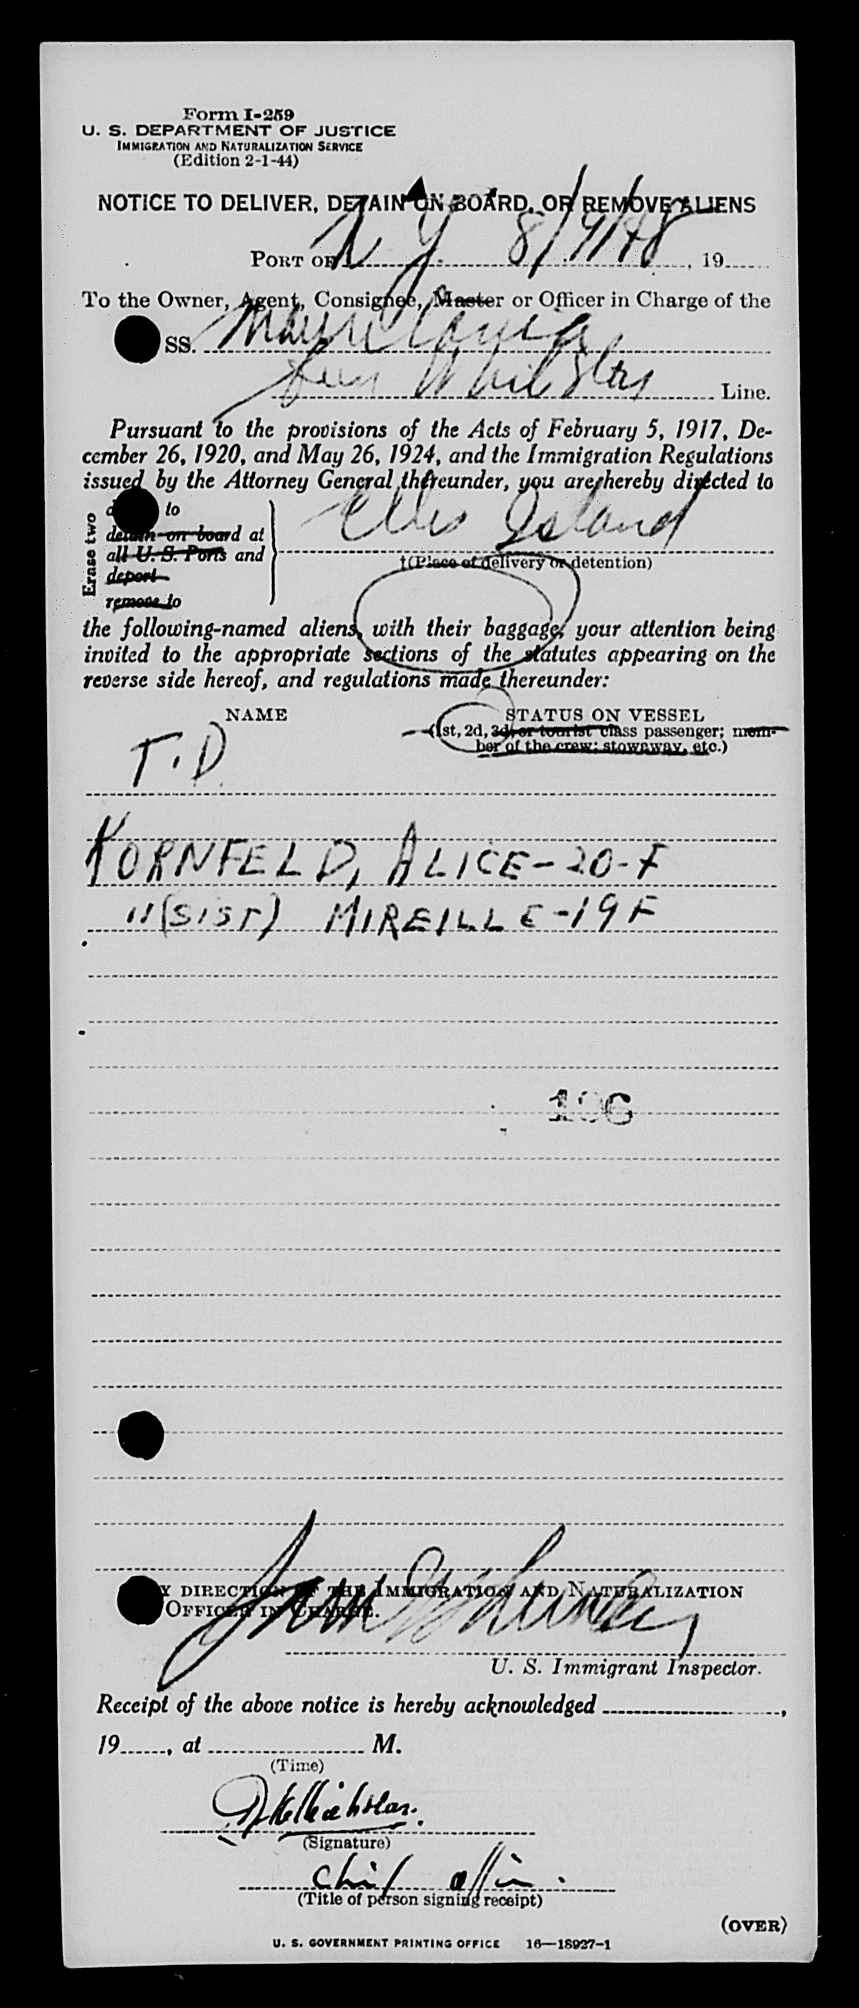 Form I-259
U. S. DEPARTMENT OF JUSTICE
IMMIGRATION AND NATURALIZATION SERVICE
(Edition 2-1-44)
NOTICE TO DELIVER, DETAIN ON BOARD, OR REMOVE ALIENS
PORT OF N Y 8/9/48, 19
To the Owner, Agent, Consignee, Master or Officer in Charge of the
SS.
Line.
Pursuant to the provisions of the Acts of February 5, 1917, De-
cember 26, 1920, and May 26, 1924, and the Immigration Regulations
issued by the Attorney General thereunder, you are hereby directed to
Erase two
to
detain on board at
all U. S. Ports and
deport
remove to
Ellis Island
†(Place of delivery or detention)
the following-named aliens, with their baggage, your attention being
invited to the appropriate sections of the statutes appearing on the
reverse side hereof, and regulations made thereunder:
NAME STATUS ON VESSEL
(1st, 2d, 3d, or tourist class passenger; mem-
ber of the crew; stowaway, etc.)
T.D
KORNFELD, ALICE-20-F
"(SIST) MIREILLE-19F
BY DIRECTION OF THE IMMIGRATION AND NATURALIZATION
OFFICER IN CHARGE.
U. S. Immigrant Inspector.
Receipt of the above notice is hereby acknowledged ,
19, at M.
(Time)
(Signature)
(Title of person signing receipt)
(OVER)
U. S. GOVERNMENT PRINTING OFFICE 16—18927-1